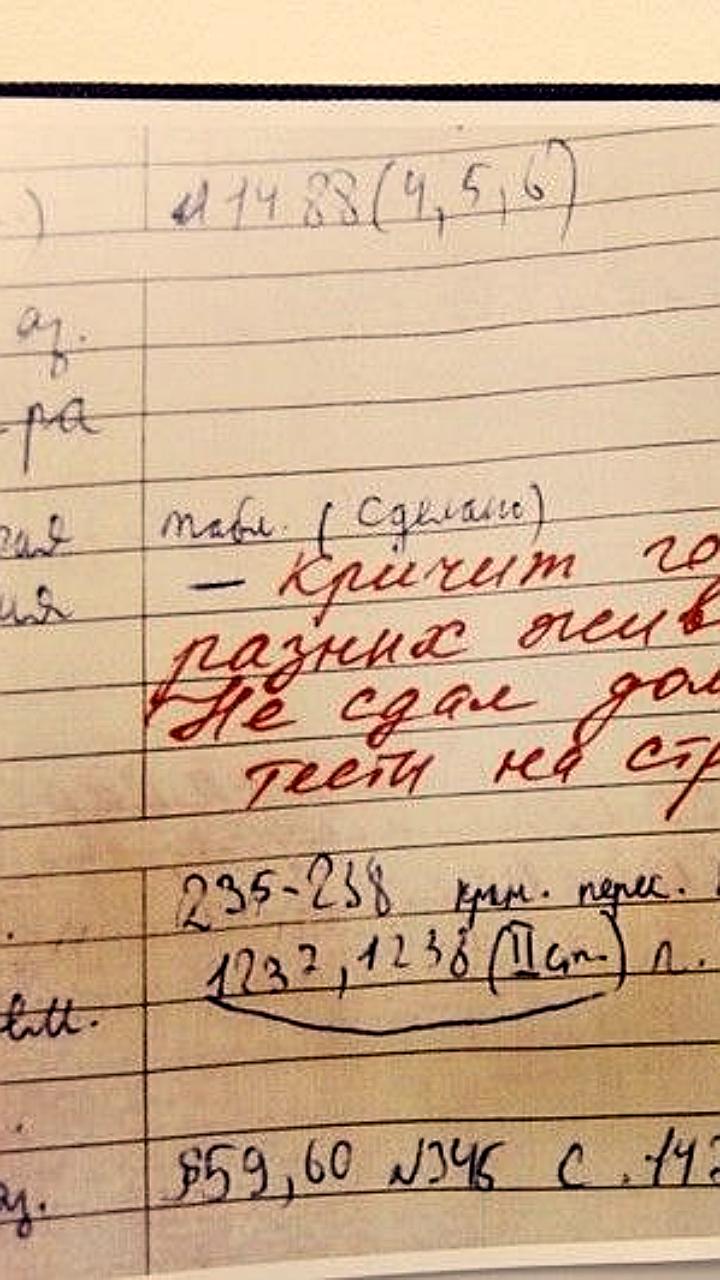 ) №1488(4,5,6)
аз.
-ра
табл. (Сделано)
— Кричит го
разных жив
Не сдал дом
тести на стр
235-238 крат. перес.
1237, 1238 (II ст.) п.
§59,60 №346 с. 142